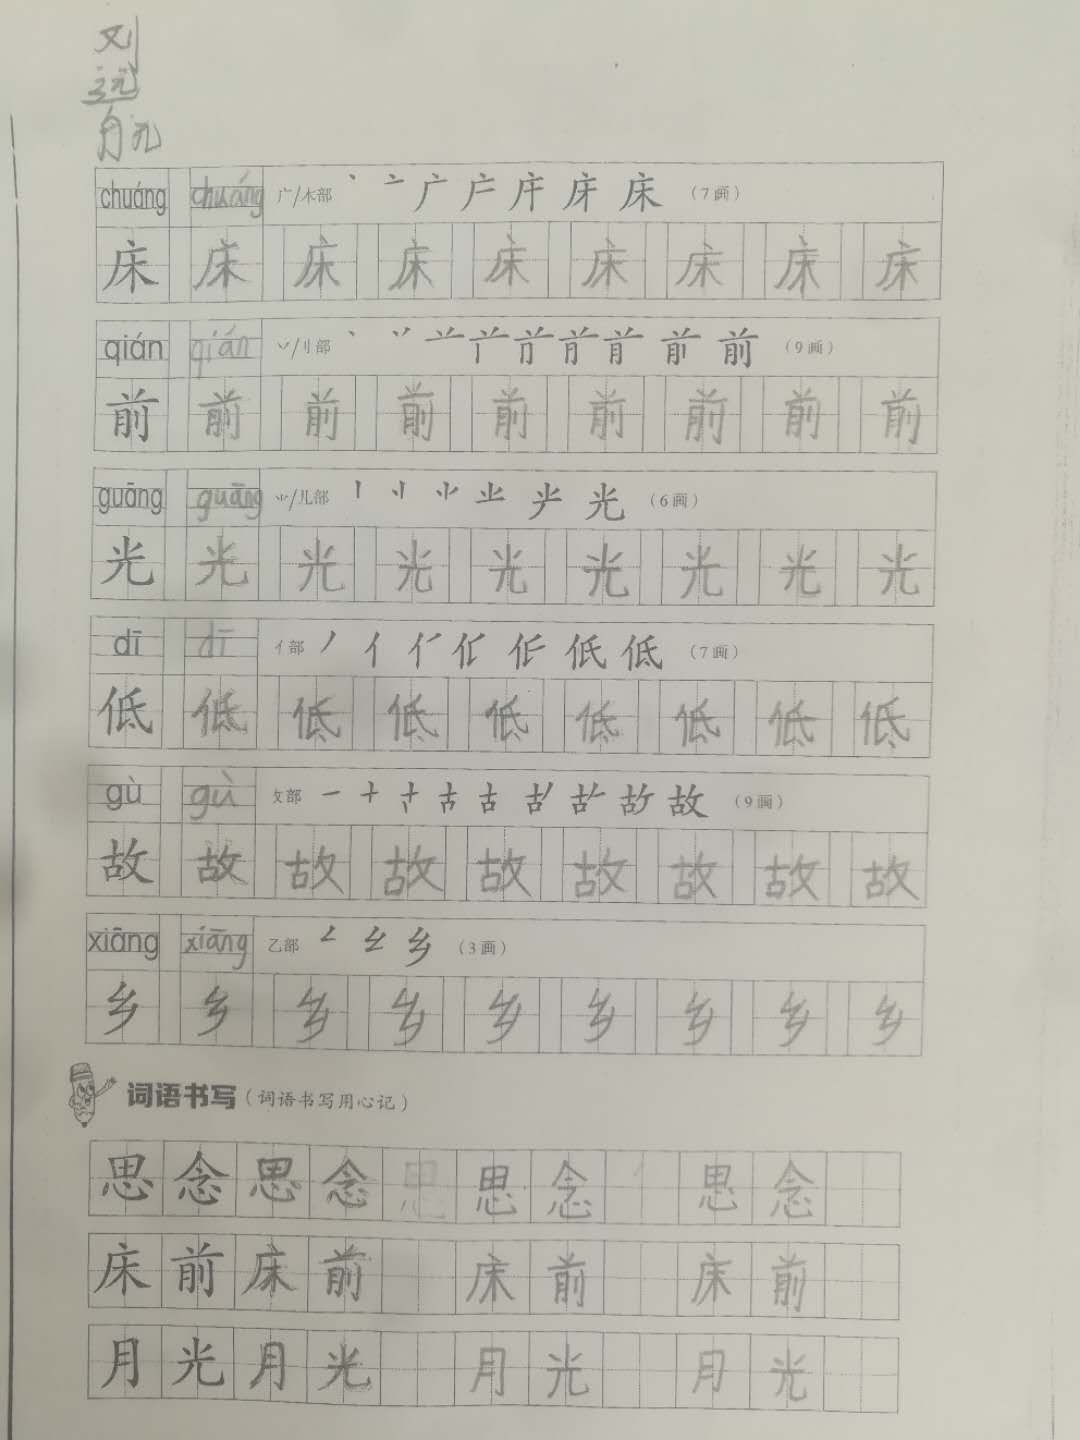 刘
远
航
chuáng chuáng 广/木部 丶 亠 广 庐 床 床 (7画)
床 床 床 床 床 床 床 床 床
qián qián 丷/刂部 丶 丷 前 (9画)
前 前 前 前 前 前 前 前 前
guāng guāng ⺌/儿部 丨 光 (6画)
光 光 光 光 光 光 光 光 光
dī dī 亻部 丿 亻 低 低 (7画)
低 低 低 低 低 低 低 低 低
gù gù 攵部 一 十 古 古 故 (9画)
故 故 故 故 故 故 故 故 故
xiāng xiāng 乙部 乡 (3画)
乡 乡 乡 乡 乡 乡 乡 乡 乡
词语书写(词语书写用心记)
思念思念思思念 思念
床前床前 床前 床前
月光月光 月光 月光